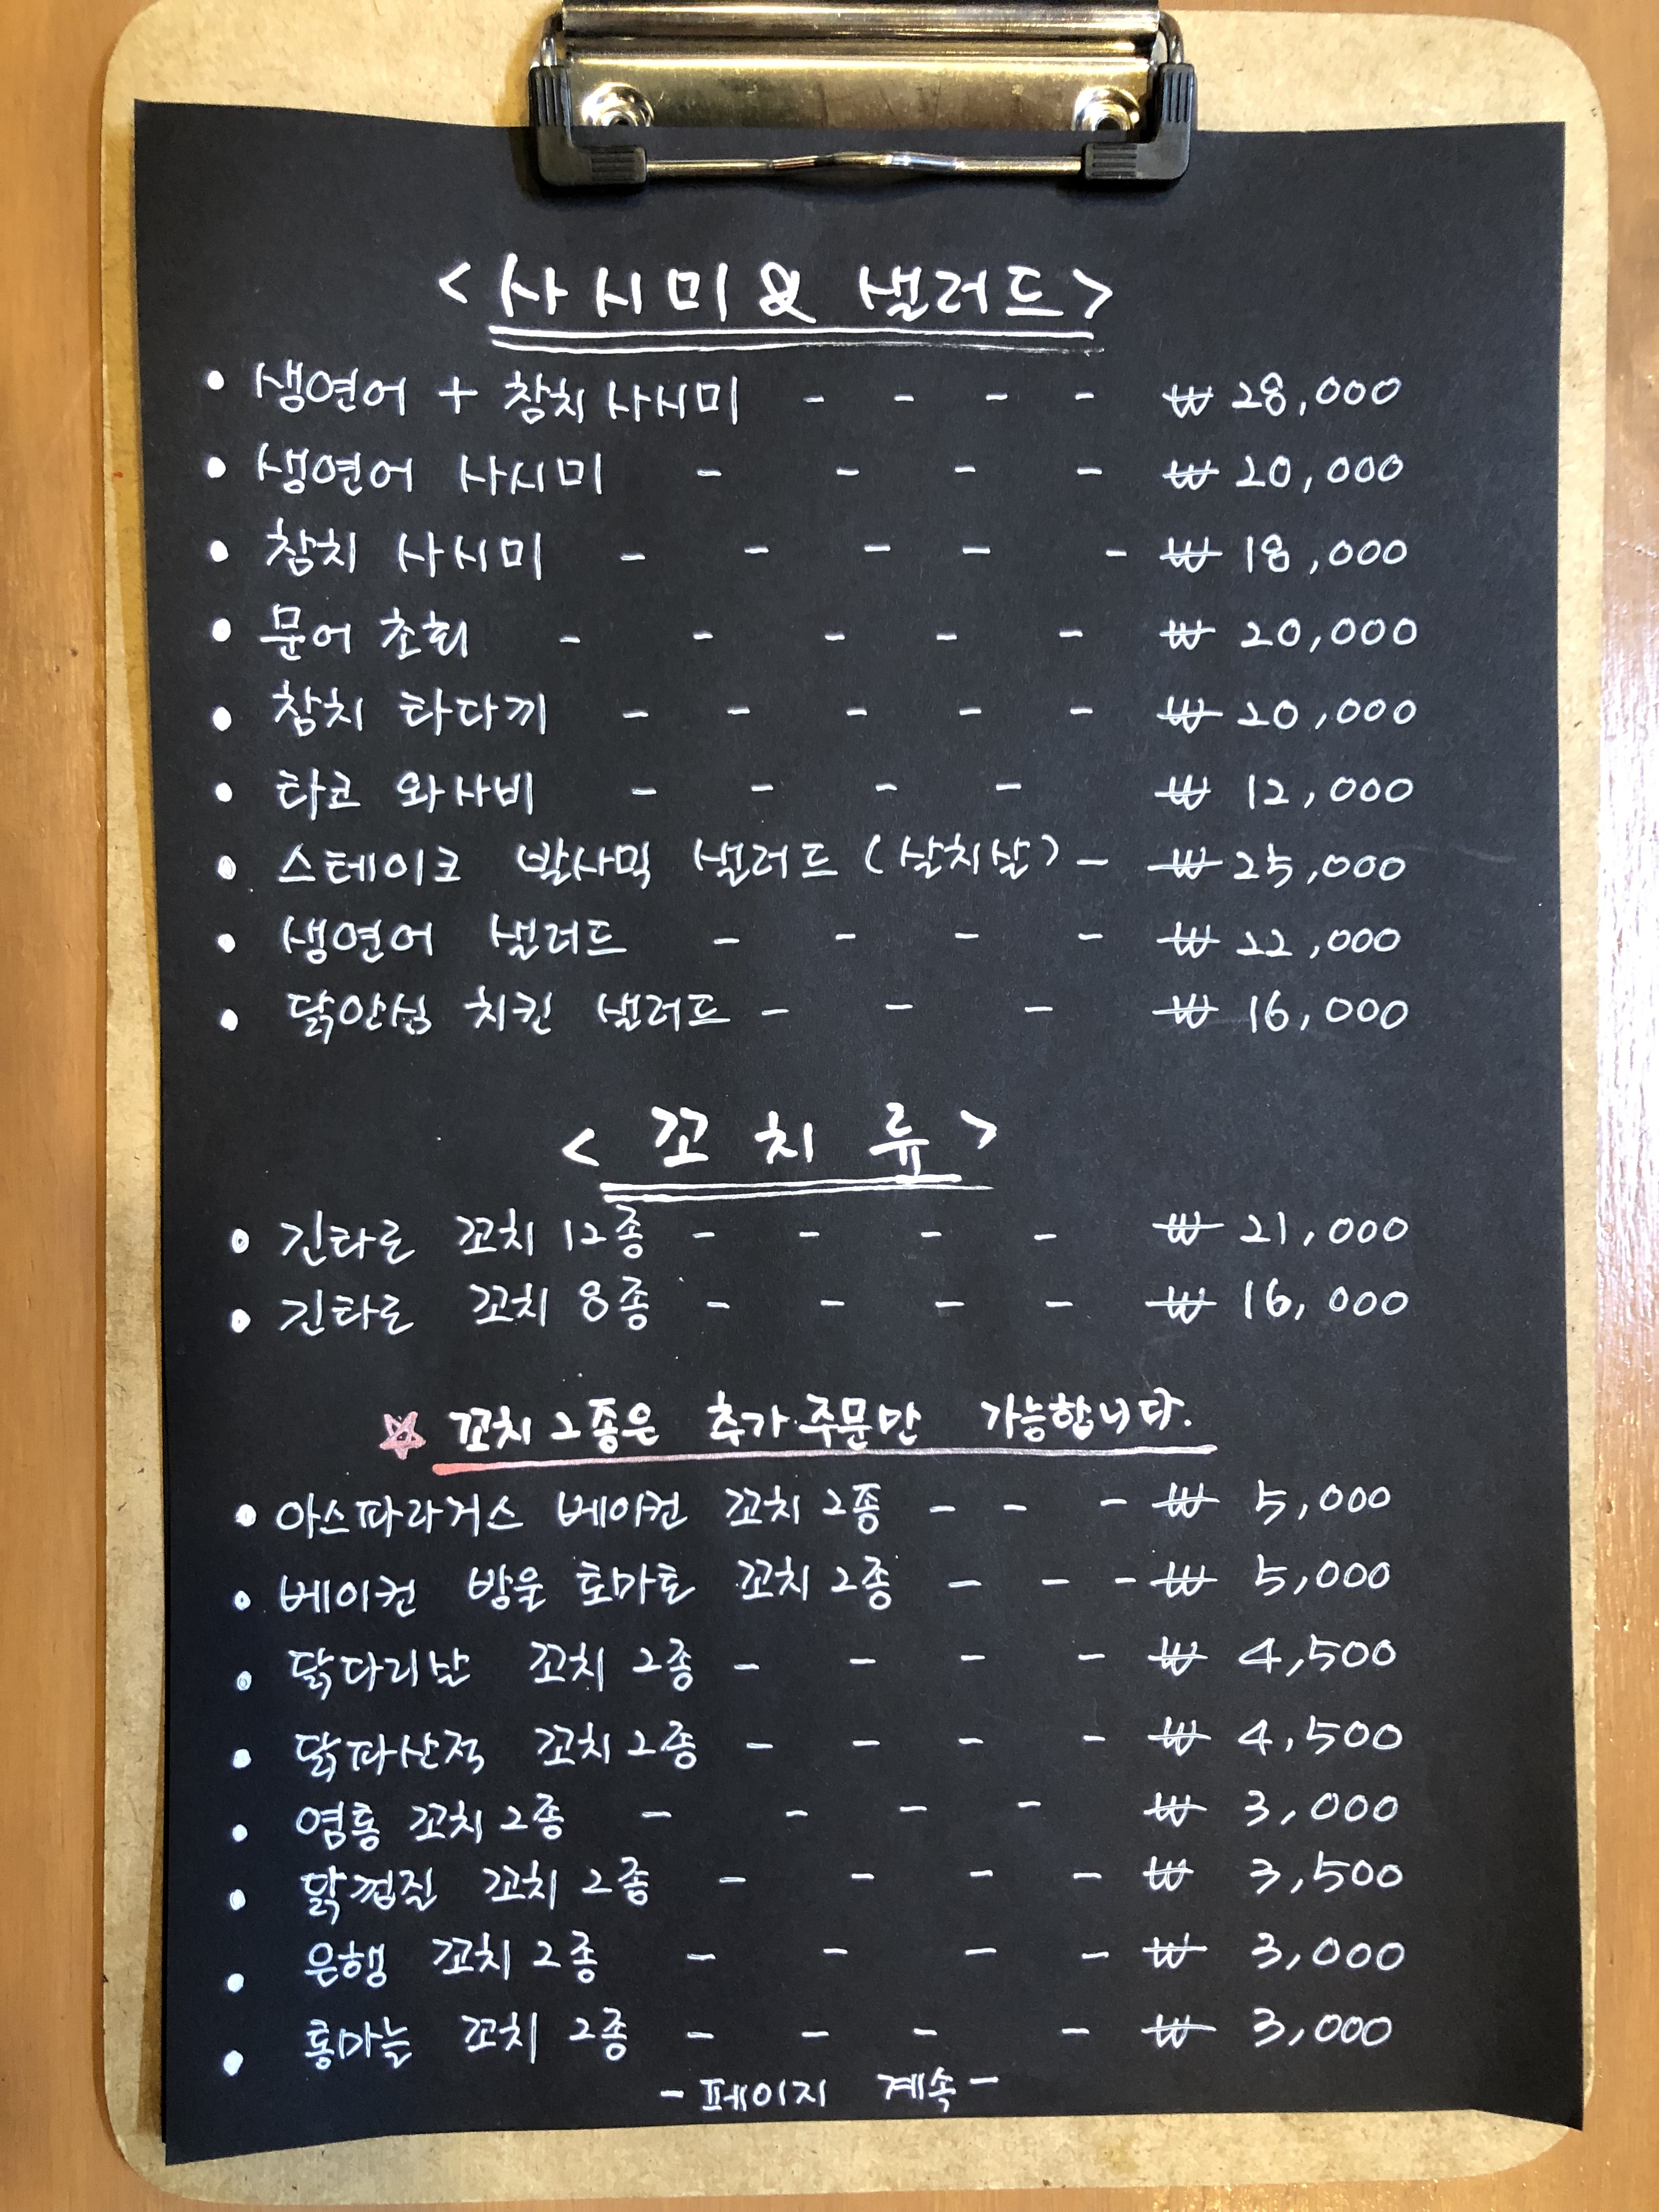 <사시미 & 샐러드>
• 생연어 + 참치 사시미 - - - - ₩ 28,000
• 생연어 사시미 - - - - ₩ 20,000
• 참치 사시미 - - - - - ₩ 18,000
• 문어 초회 - - - - - ₩ 20,000
• 참치 타다끼 - - - - - ₩ 20,000
• 타코 와사비 - - - - ₩ 12,000
• 스테이크 발사믹 샐러드 (살치살) - ₩ 25,000
• 생연어 샐러드 - - - - ₩ 22,000
• 닭안심 치킨 샐러드 - - - ₩ 16,000
< 꼬치류 >
• 긴타로 꼬치 12종 - - - - ₩ 21,000
• 긴타로 꼬치 8종 - - - - ₩ 16,000
☆ 꼬치 2종은 추가 주문만 가능합니다.
• 아스파라거스 베이컨 꼬치 2종 - - - ₩ 5,000
• 베이컨 방울 토마토 꼬치 2종 - - - ₩ 5,000
• 닭다리살 꼬치 2종 - - - - ₩ 4,500
• 닭파산적 꼬치 2종 - - - - ₩ 4,500
• 염통 꼬치 2종 - - - - ₩ 3,000
• 닭껍질 꼬치 2종 - - - - ₩ 3,500
• 은행 꼬치 2종 - - - - ₩ 3,000
• 통마늘 꼬치 2종 - - - - ₩ 3,000
- 페이지 계속 -